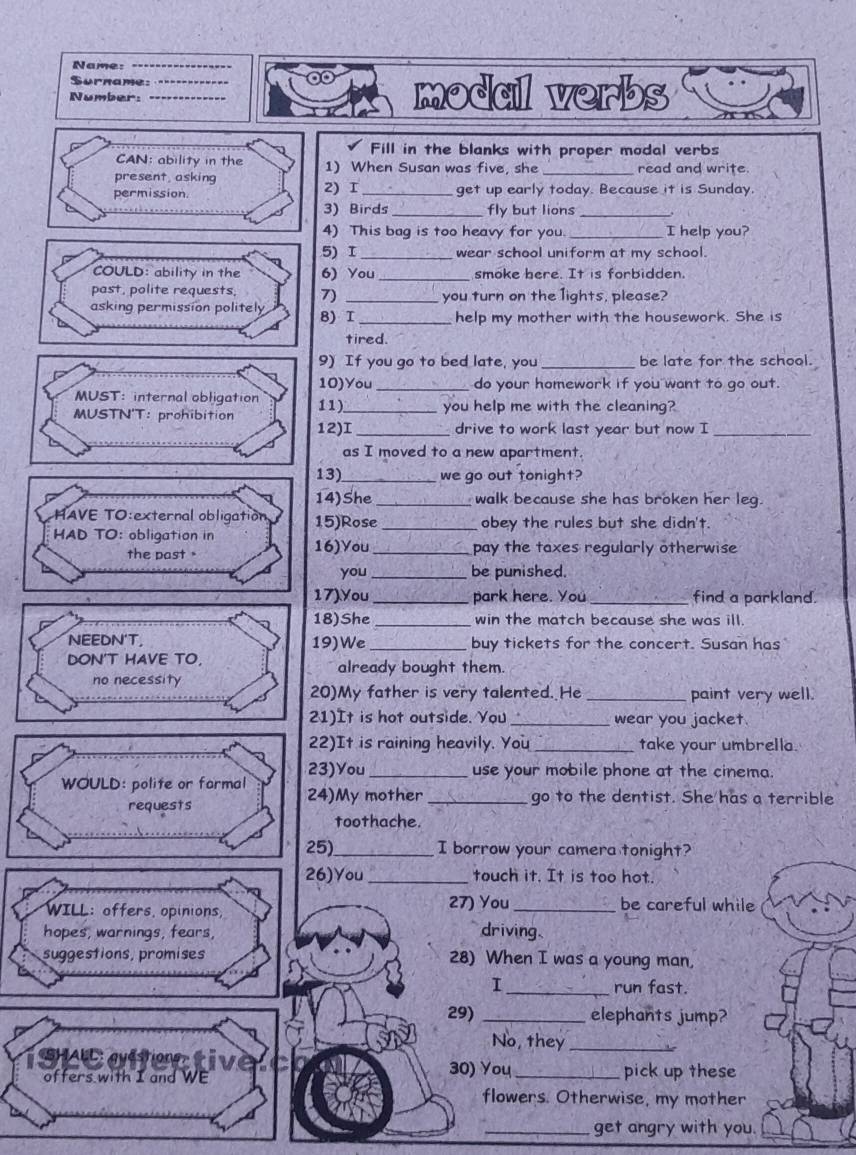 Name: -----------------
Surname: ------------
Number: -------------
modal verbs
CAN: ability in the
present, asking
permission.
COULD: ability in the
past, polite requests,
asking permission politely
MUST: internal obligation
MUSTN'T: prohibition
HAVE TO:external obligation
HAD TO: obligation in
the past
NEEDN'T,
DON'T HAVE TO,
no necessity
WOULD: polite or formal
requests
WILL: offers, opinions,
hopes, warnings, fears,
suggestions, promises
SHALL: questions,
offers with I and WE
iSLCollective.com
✓ Fill in the blanks with proper modal verbs
1) When Susan was five, she __________ read and write.
2) I __________ get up early today. Because it is Sunday.
3) Birds __________ fly but lions __________.
4) This bag is too heavy for you. __________ I help you?
5) I __________ wear school uniform at my school.
6) You __________ smoke here. It is forbidden.
7) __________ you turn on the lights, please?
8) I __________ help my mother with the housework. She is
tired.
9) If you go to bed late, you __________ be late for the school.
10)You __________ do your homework if you want to go out.
11)__________ you help me with the cleaning?
12)I __________ drive to work last year but now I __________
as I moved to a new apartment.
13)__________ we go out tonight?
14)She __________ walk because she has broken her leg.
15)Rose __________ obey the rules but she didn't.
16)You __________ pay the taxes regularly otherwise
you __________ be punished.
17)You __________ park here. You __________ find a parkland.
18)She __________ win the match because she was ill.
19)We __________ buy tickets for the concert. Susan has
already bought them.
20)My father is very talented. He __________ paint very well.
21)It is hot outside. You __________ wear you jacket.
22)It is raining heavily. You __________ take your umbrella.
23)You __________ use your mobile phone at the cinema.
24)My mother __________ go to the dentist. She has a terrible
toothache.
25)__________ I borrow your camera tonight?
26)You __________ touch it. It is too hot.
27) You __________ be careful while
driving.
28) When I was a young man,
I __________ run fast.
29) __________ elephants jump?
No, they __________
30) You __________ pick up these
flowers. Otherwise, my mother
__________ get angry with you.